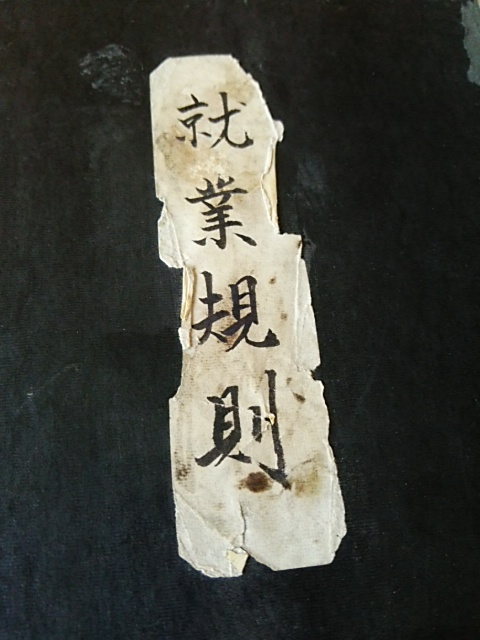 就業規則